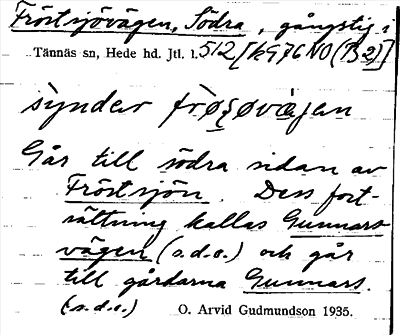 Fröstsjövägen, Södra, gångstig i
Tännäs sn, Hede hd. Jtl. l. 512 [k976NO(B2)]
syndər frøʂøvægen
Går till södra sidan av
Fröstsjön. Dess fort-
sättning kallas Gunnars
vägen (s.d.o.) och går
till gårdarna Gunnars.
(s.d.o.) O. Arvid Gudmundson 1935.